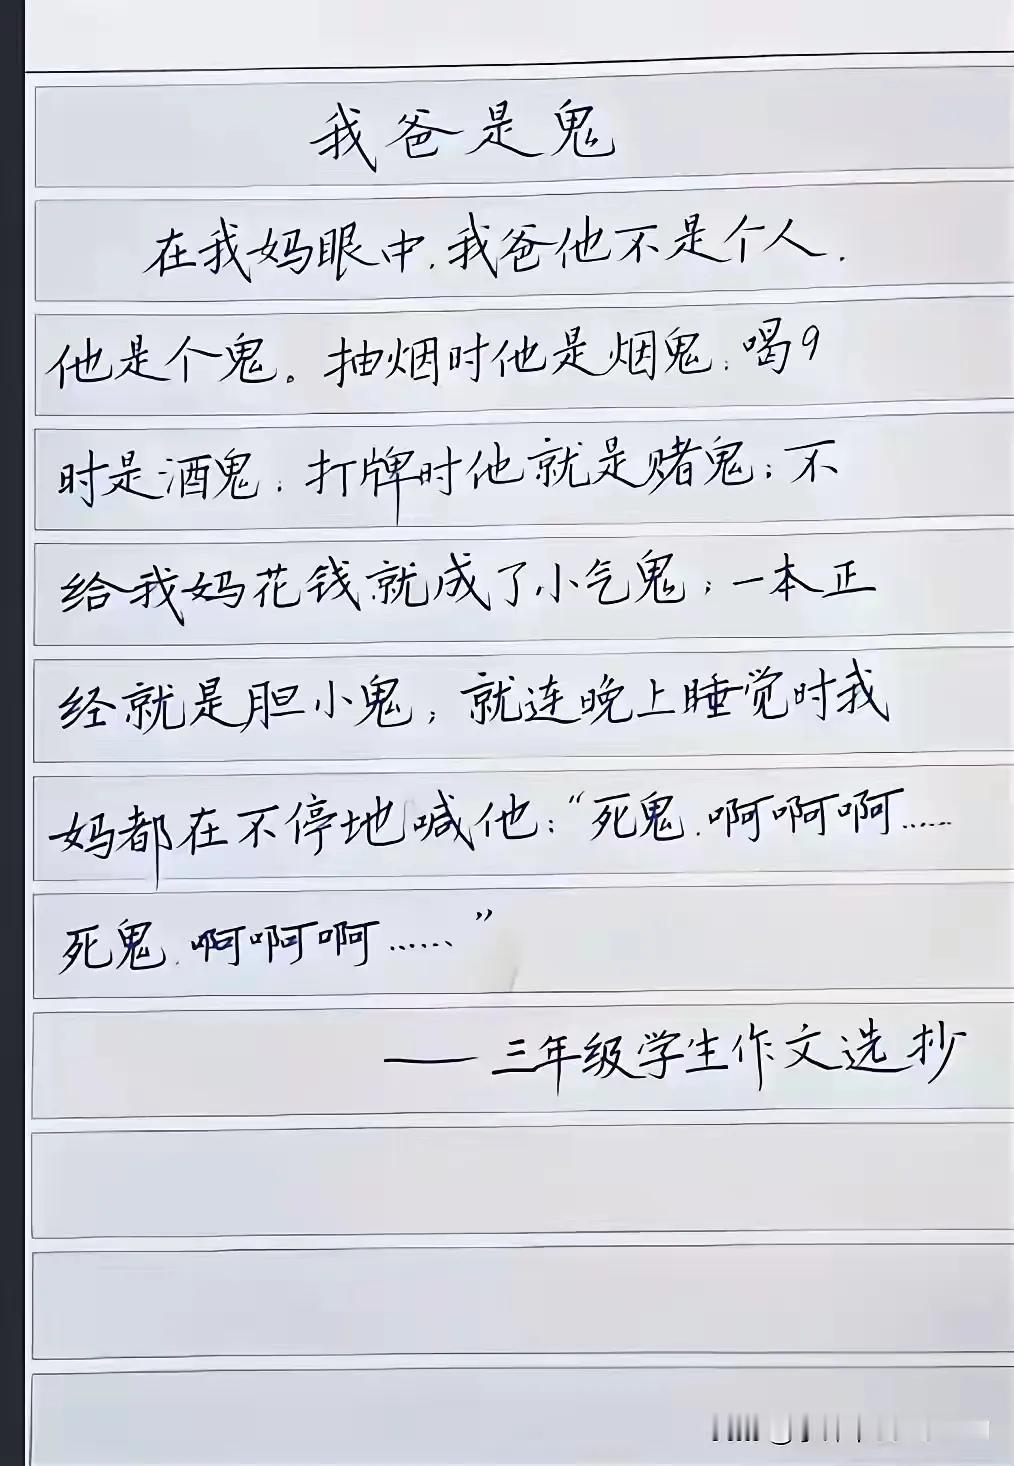 我爸是鬼
在我妈眼中.我爸他不是个人.
他是个鬼。抽烟时他是烟鬼;喝9
时是酒鬼;打牌时他就是赌鬼;不
给我妈花钱就成了小气鬼;一本正
经就是胆小鬼;就连晚上睡觉时我
妈都在不停地喊他:“死鬼.啊啊啊……
死鬼.啊啊啊……”
——三年级学生作文选抄